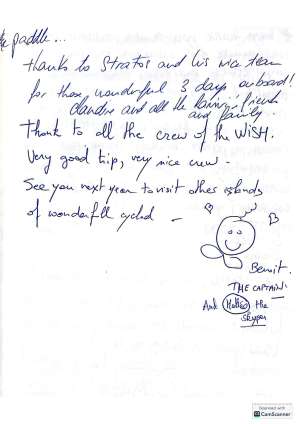 the paddle...
thanks to Stratos and his nice team
for those wonderful 3 days onboard!
Claudre and all the friends
and family.
Thank to all the crew of the WISH.
Very good trip, very nice crew -
See you next year to visit others islands
of wonderfull cyclad -
Benoit.
THE CAPTAIN.
And Matteo the
skyper
Scanned with
CamScanner